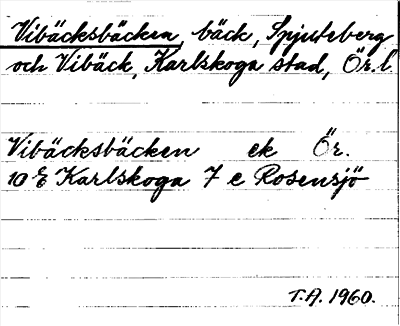 Vibäcksbäcken, bäck, Spjuteberg
och Vibäck, Karlskoga stad, Ör. l.
Vibäcksbäcken ek Ör.
10 E Karlskoga 7 e Rosensjö
T.A. 1960.